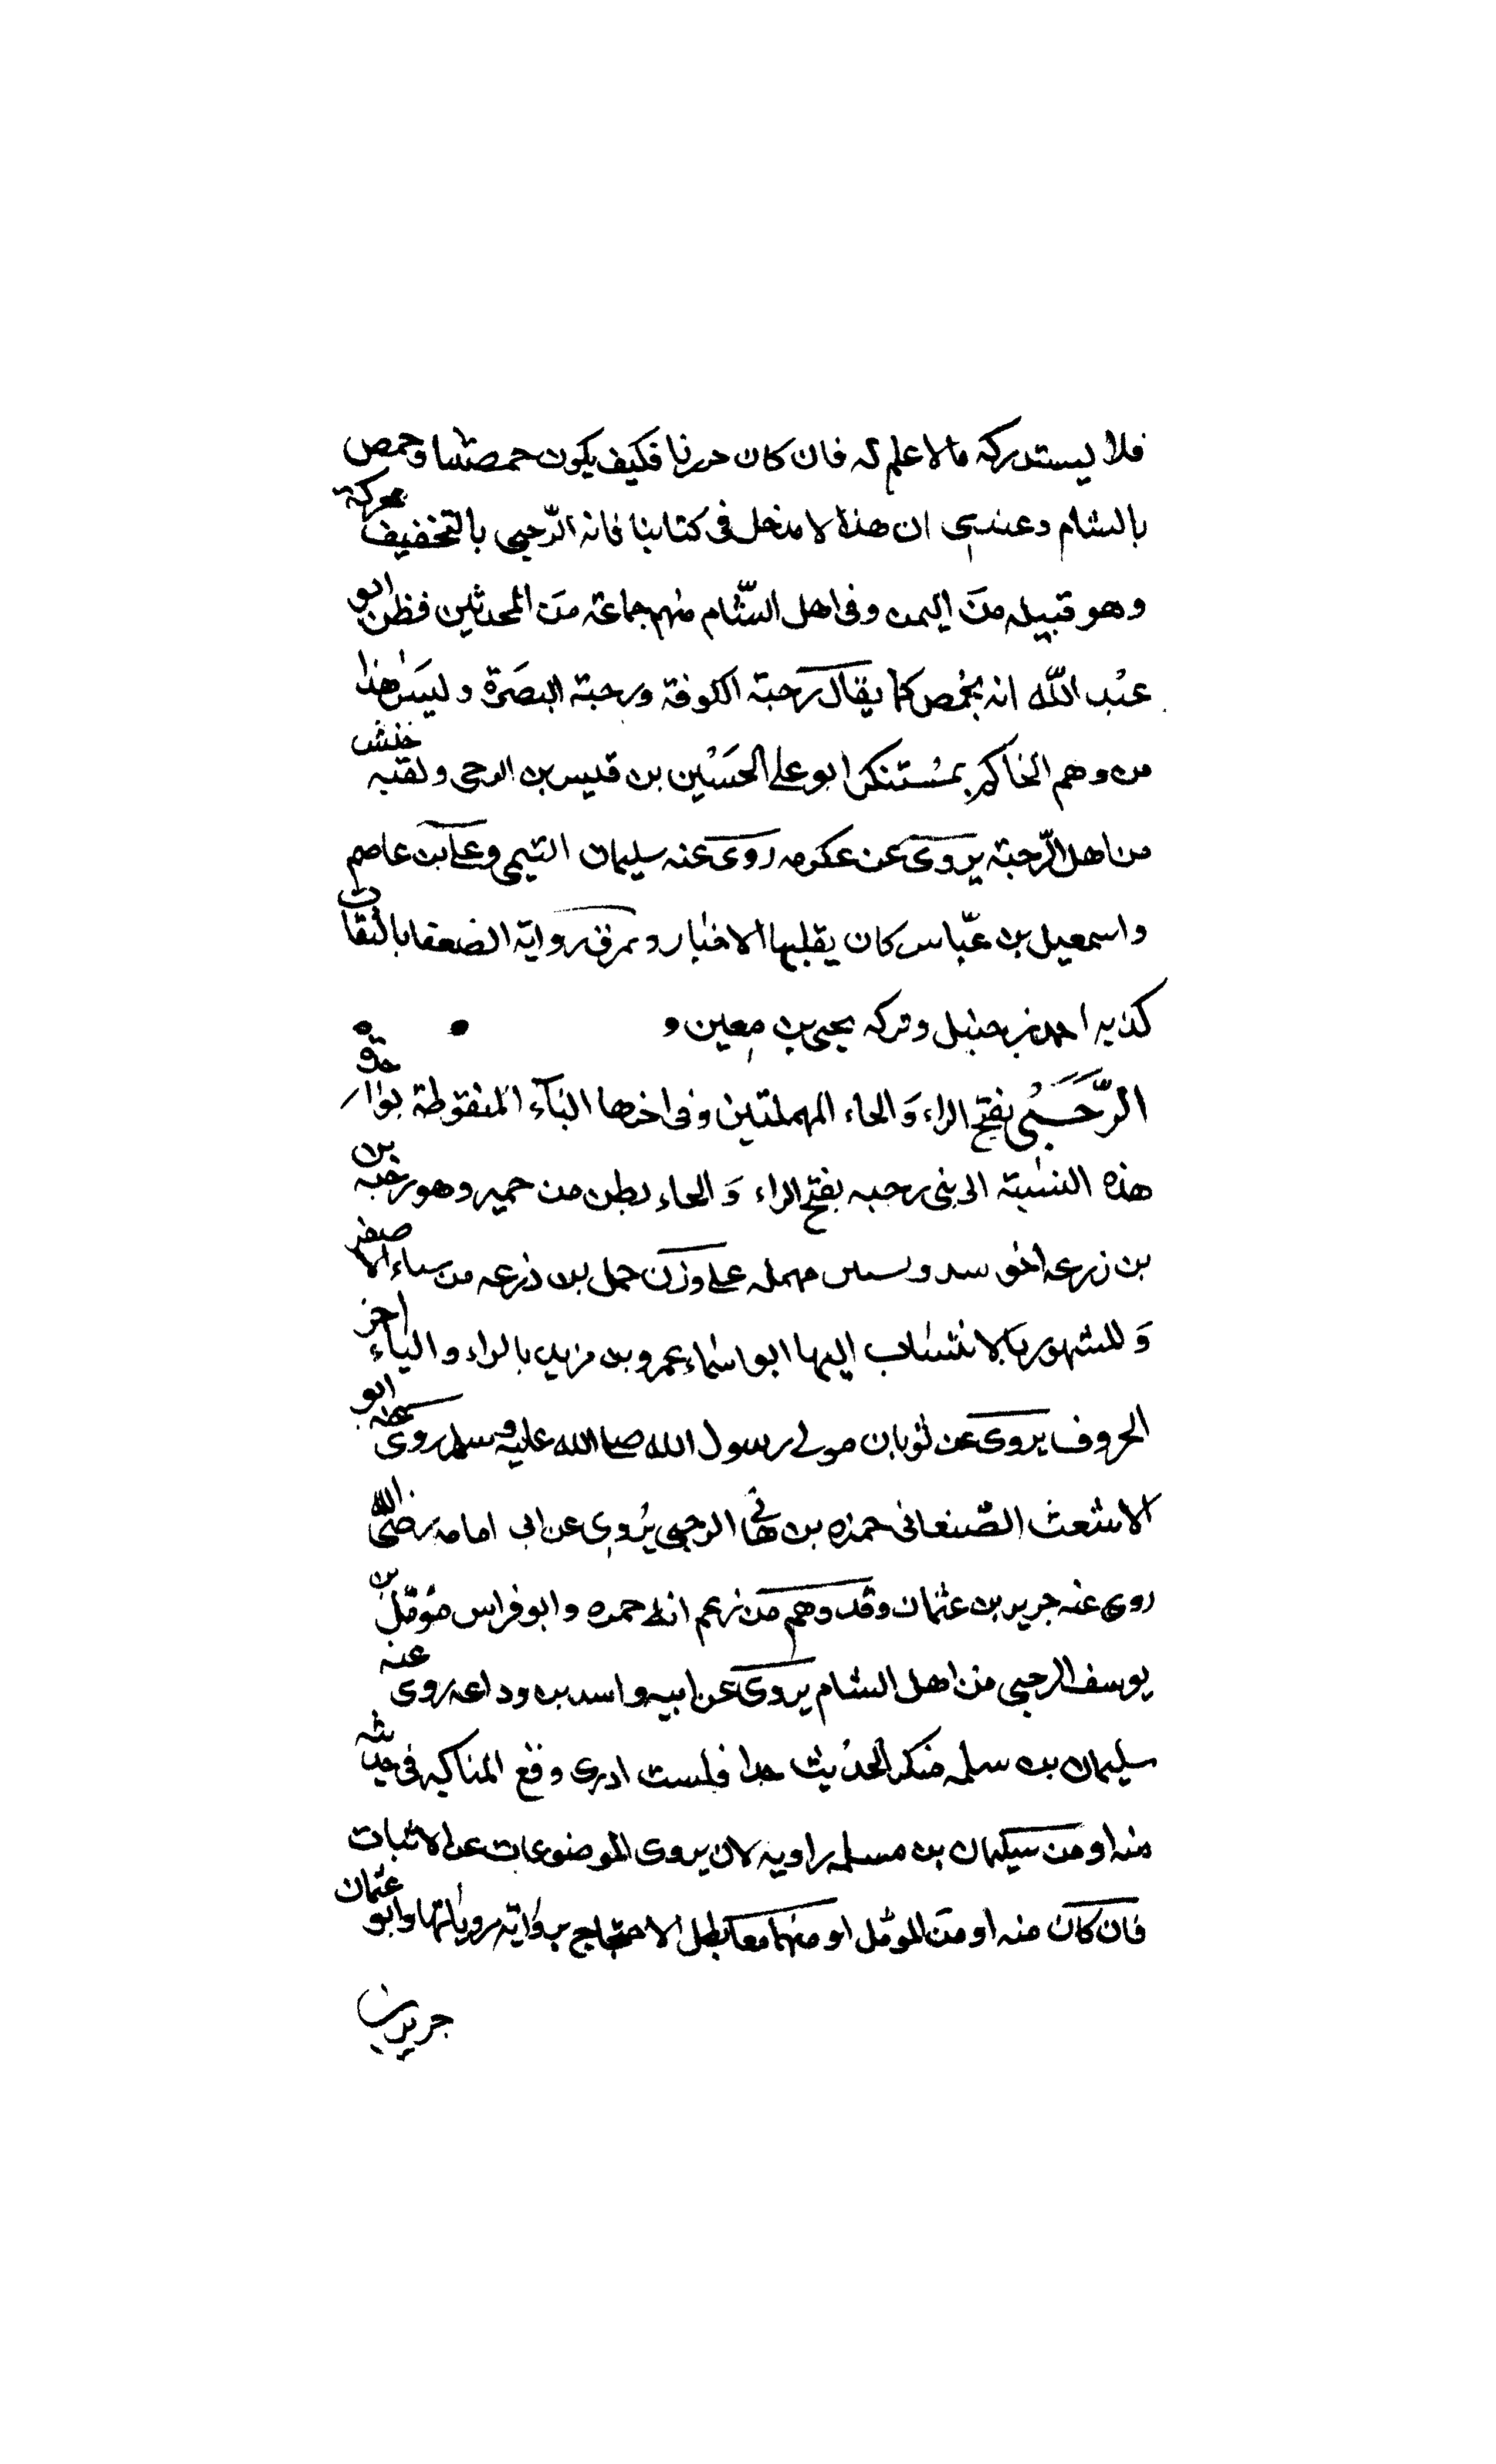 فلا يستدركه مالا علم له فان كان حررنا فكيف يكون حمصيا وحمص
بالشام وعندى ان هذا لا مدخل فى كتابنا فانه الرّحبى بالتخفيف حركة
وهو قبيله منَ اليمن وفى اهل الشّام منهم جماعة منَ المحدثين فظن ابو
عبد اللّه انه بحمص كما يقال رحبة الكوفة ورحبة البصَرة وليسَ هذا
من وهم الحاكم بمسُتنكر ابو على الحسَُين بن قيس بن الرحبى ولقبه خنش
من اهل الرّحبة يروى عن عكرمه روى عنه سليمان التيمى وعلى بن عاصم
واسمعيل بن عبّاس كان يقلبها الاخبار و رواية الضعفا بالثقات
كذبه احمد بن حنبل وتركه يحيى بن معين و
الرَّحَبُى بفتح الراء وَ الحاء المهملتين وفى اخرها البآء المنقوطة بواحدة
هذه النسبة الى بنى رحبه بفتح الراء وَ الحاء بطن من حمير وهو رحبه بن
بن زرعه اخو سدد بسين مهمله على وزن حمل بن زرعه من سباء الاصغر
وَ المشهور بالانتساب اليها ابو اسماء عمرو بن مزيد بالراء والياء اخر
الحروف يروى عن ثوبان مولى رسول الله صلى الله عليه وسلم روى عنه ابو
الاشعث الصّنعانى حمزه بن هانى الرحبى يُروى عن ابى امامه رضى اللّه
روى عنه جرير بن عثمان وقد وهم من زعم انه حمزه وابو فراس مؤمّل بن
يوسف الرحبى من اهل الشام يروى عن ابيه واسد بن وداعه روى عنه
سليمان بن سلمه منكر الحدُيث جدا فلست ادرى وقع المناكير فى حديثه
منه او من سيلمان بن مسلمه راويه لان يروى الموضوعات عن الاثبات
فان كان منه او منَ الموّمل او منهما معا بطل الاحتجاج برواية مروياتها وابو عثمان
جرير بن